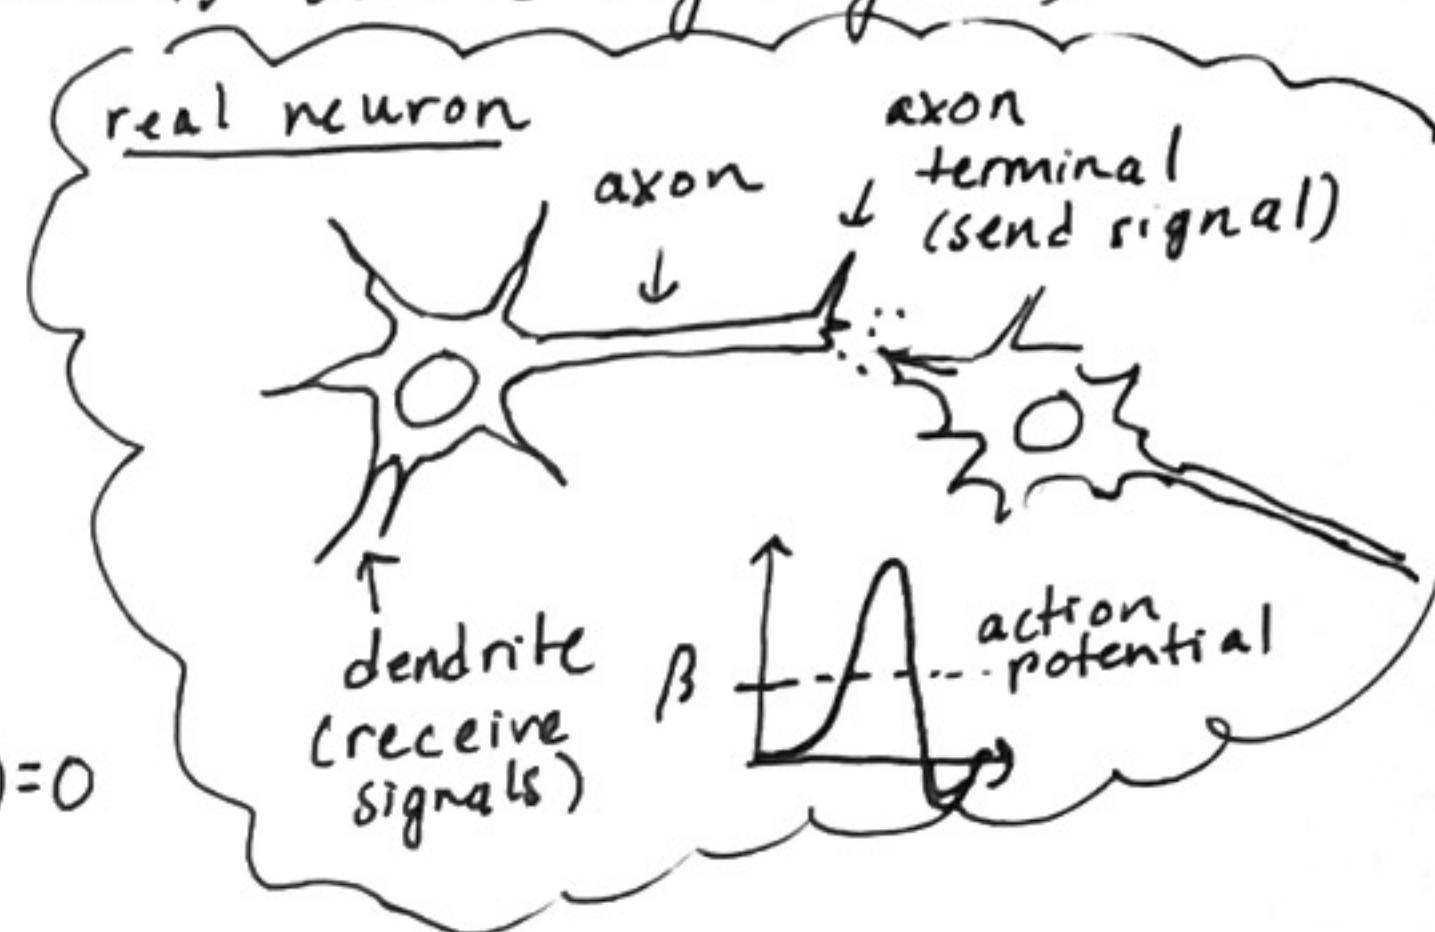 real neuron
axon
axon
terminal
(send signal)
dendrite
(receive
signals)
β
action
potential
)=0